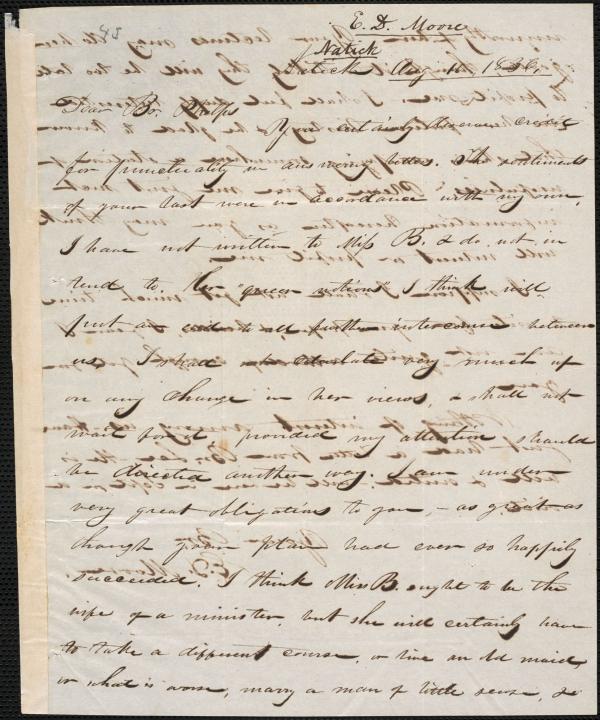 43
E. D. Moore
Natick
Natick Aug 11. 1836.
Dear Br. Phelps
Your certainly deserve credit
for punctuality in answering letters. The sentiments
of your last were in accordance with my own.
I have not written to Miss B. & do not in
tend to. Her "queer notions" I think will
put an end to all further intercourse between
us. I shall not calculate very much up
on any change in her views, & shall not
wait for it, provided my attention should
be directed another way. I am under
very great obligations to you, - as great as
though your plan had ever so happily
succeeded. I think Miss B. ought to be the
wife of a minister, but she will certainly have
to take a different course, or live an old maid,
or what is worse, marry a man of little sense, &